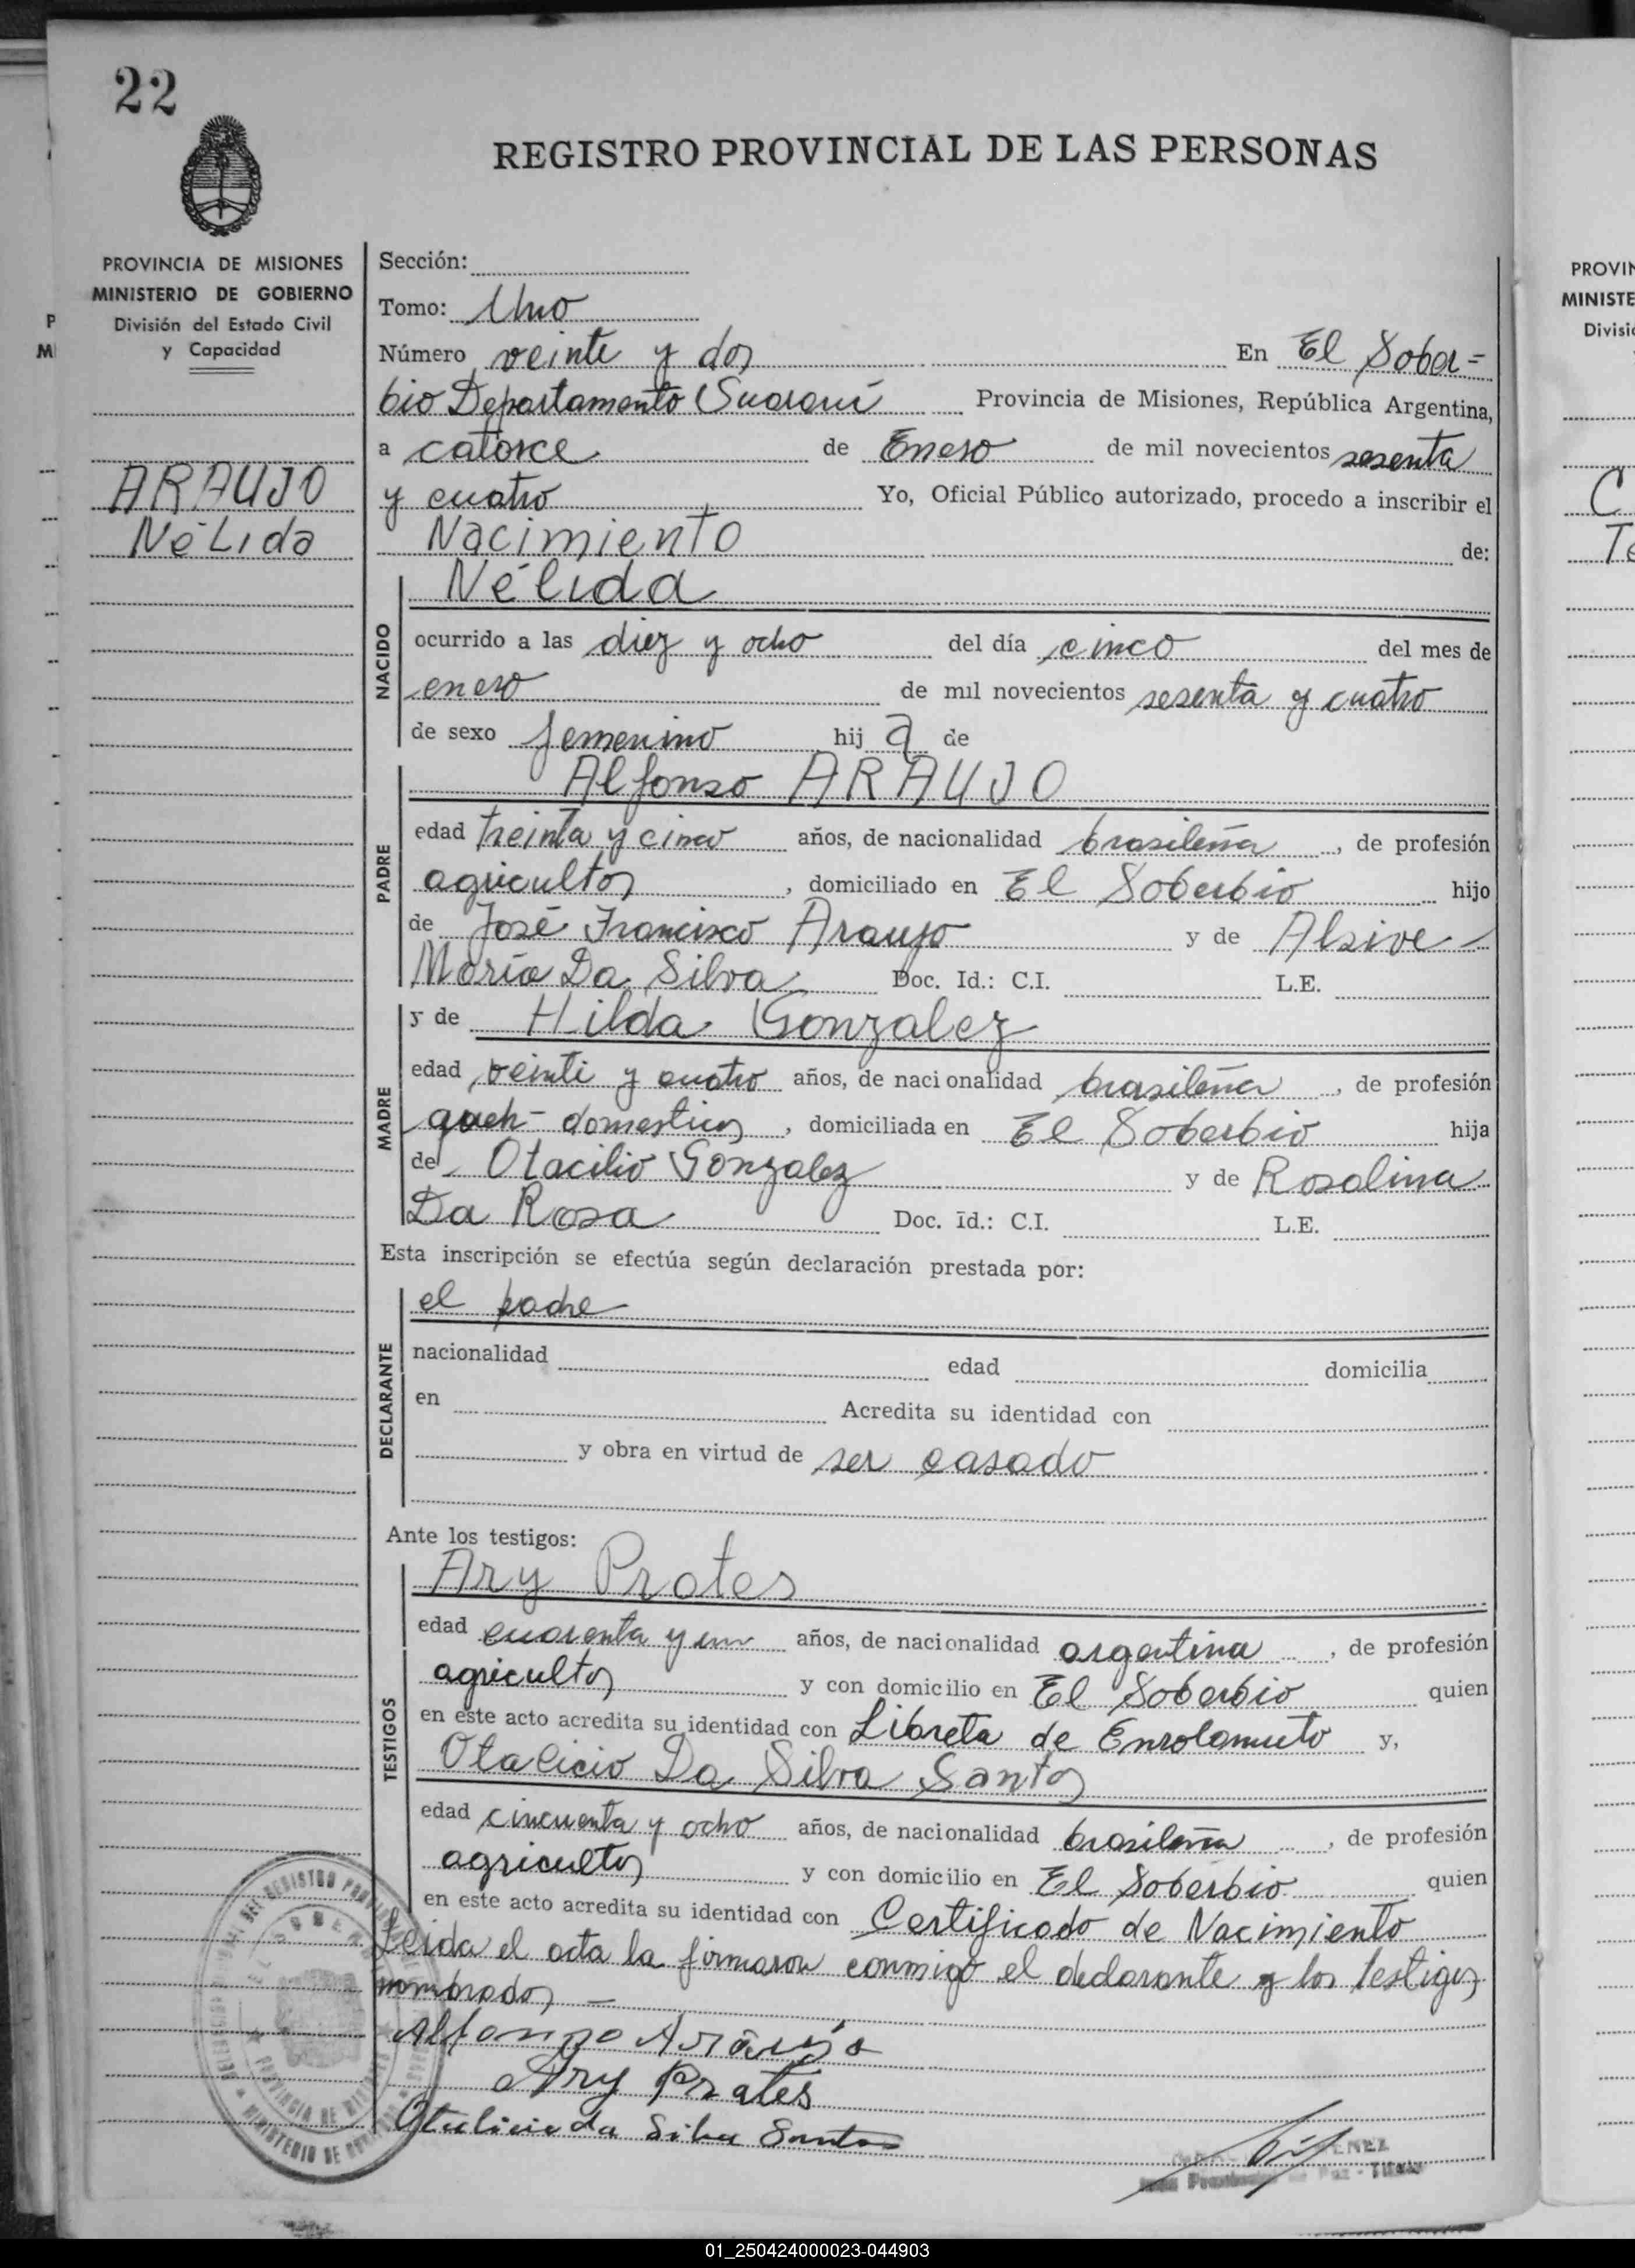 22
REGISTRO PROVINCIAL DE LAS PERSONAS
PROVINCIA DE MISIONES
MINISTERIO DE GOBIERNO
División del Estado Civil
y Capacidad
ARAUJO
Nélida
Sección:
Tomo: Uno
Número veinte y dos En El Sober=
bio Departamento Guaraní Provincia de Misiones, República Argentina,
a catorce de Enero de mil novecientos sesenta
y cuatro Yo, Oficial Público autorizado, procedo a inscribir el
Nacimiento de:
NACIDO
Nélida
ocurrido a las diez y ocho del día cinco del mes de
enero de mil novecientos sesenta y cuatro
de sexo femenino hij a de
PADRE
Alfonso ARAUJO
edad treinta y cinco años, de nacionalidad brasileña, de profesión
agricultor, domiciliado en El Soberbio hijo
de José Francisco Araujo y de Alsive
María Da Silva Doc. Id.: C.I. L.E.
MADRE
y de Hilda Gonzalez
edad veinti y cuatro años, de nacionalidad brasileña, de profesión
queh- domesticos, domiciliada en El Soberbio hija
de Otacilio Gonzalez y de Rosalina
Da Rosa Doc. Id.: C.I. L.E.
Esta inscripción se efectúa según declaración prestada por:
DECLARANTE
el padre
nacionalidad edad domicilia
en Acredita su identidad con
y obra en virtud de ser casado
Ante los testigos:
TESTIGOS
Ary Prates
edad cuarenta y un años, de nacionalidad argentina, de profesión
agricultor y con domicilio en El Soberbio quien
en este acto acredita su identidad con Libreta de Enrolamiento y,
Otalicio Da Silva Santos
edad cincuenta y ocho años, de nacionalidad brasileña, de profesión
agricultor y con domicilio en El Soberbio quien
en este acto acredita su identidad con Certificado de Nacimiento
Leida el acta la firmaron conmigo el declarante y los testigos
nombrados –
Alfonso Araújo
Ary Prates
Otalicio da Silva Santos
01_250424000023-044903